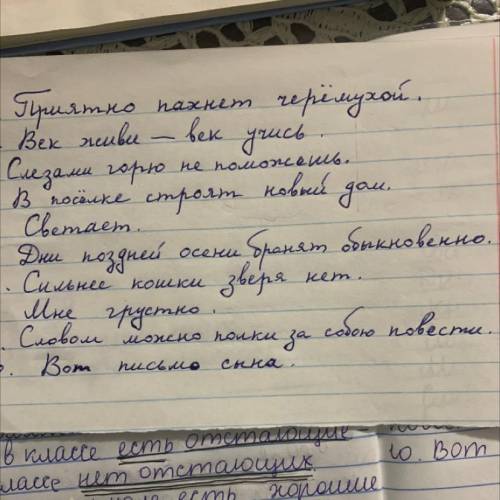 Приятно пахнет черёмухой.
Век живи — век учись.
Слезами горю не поможешь.
В посёлке строят новый дом.
Светает.
Дни поздней осени бранят обыкновенно.
Сильнее кошки зверя нет.
Мне грустно.
Словом можно полки за собою повести.
Вот письмо сына.
в классе есть отстающие
лассе нет отстающих ю. Вот
есть хорошие